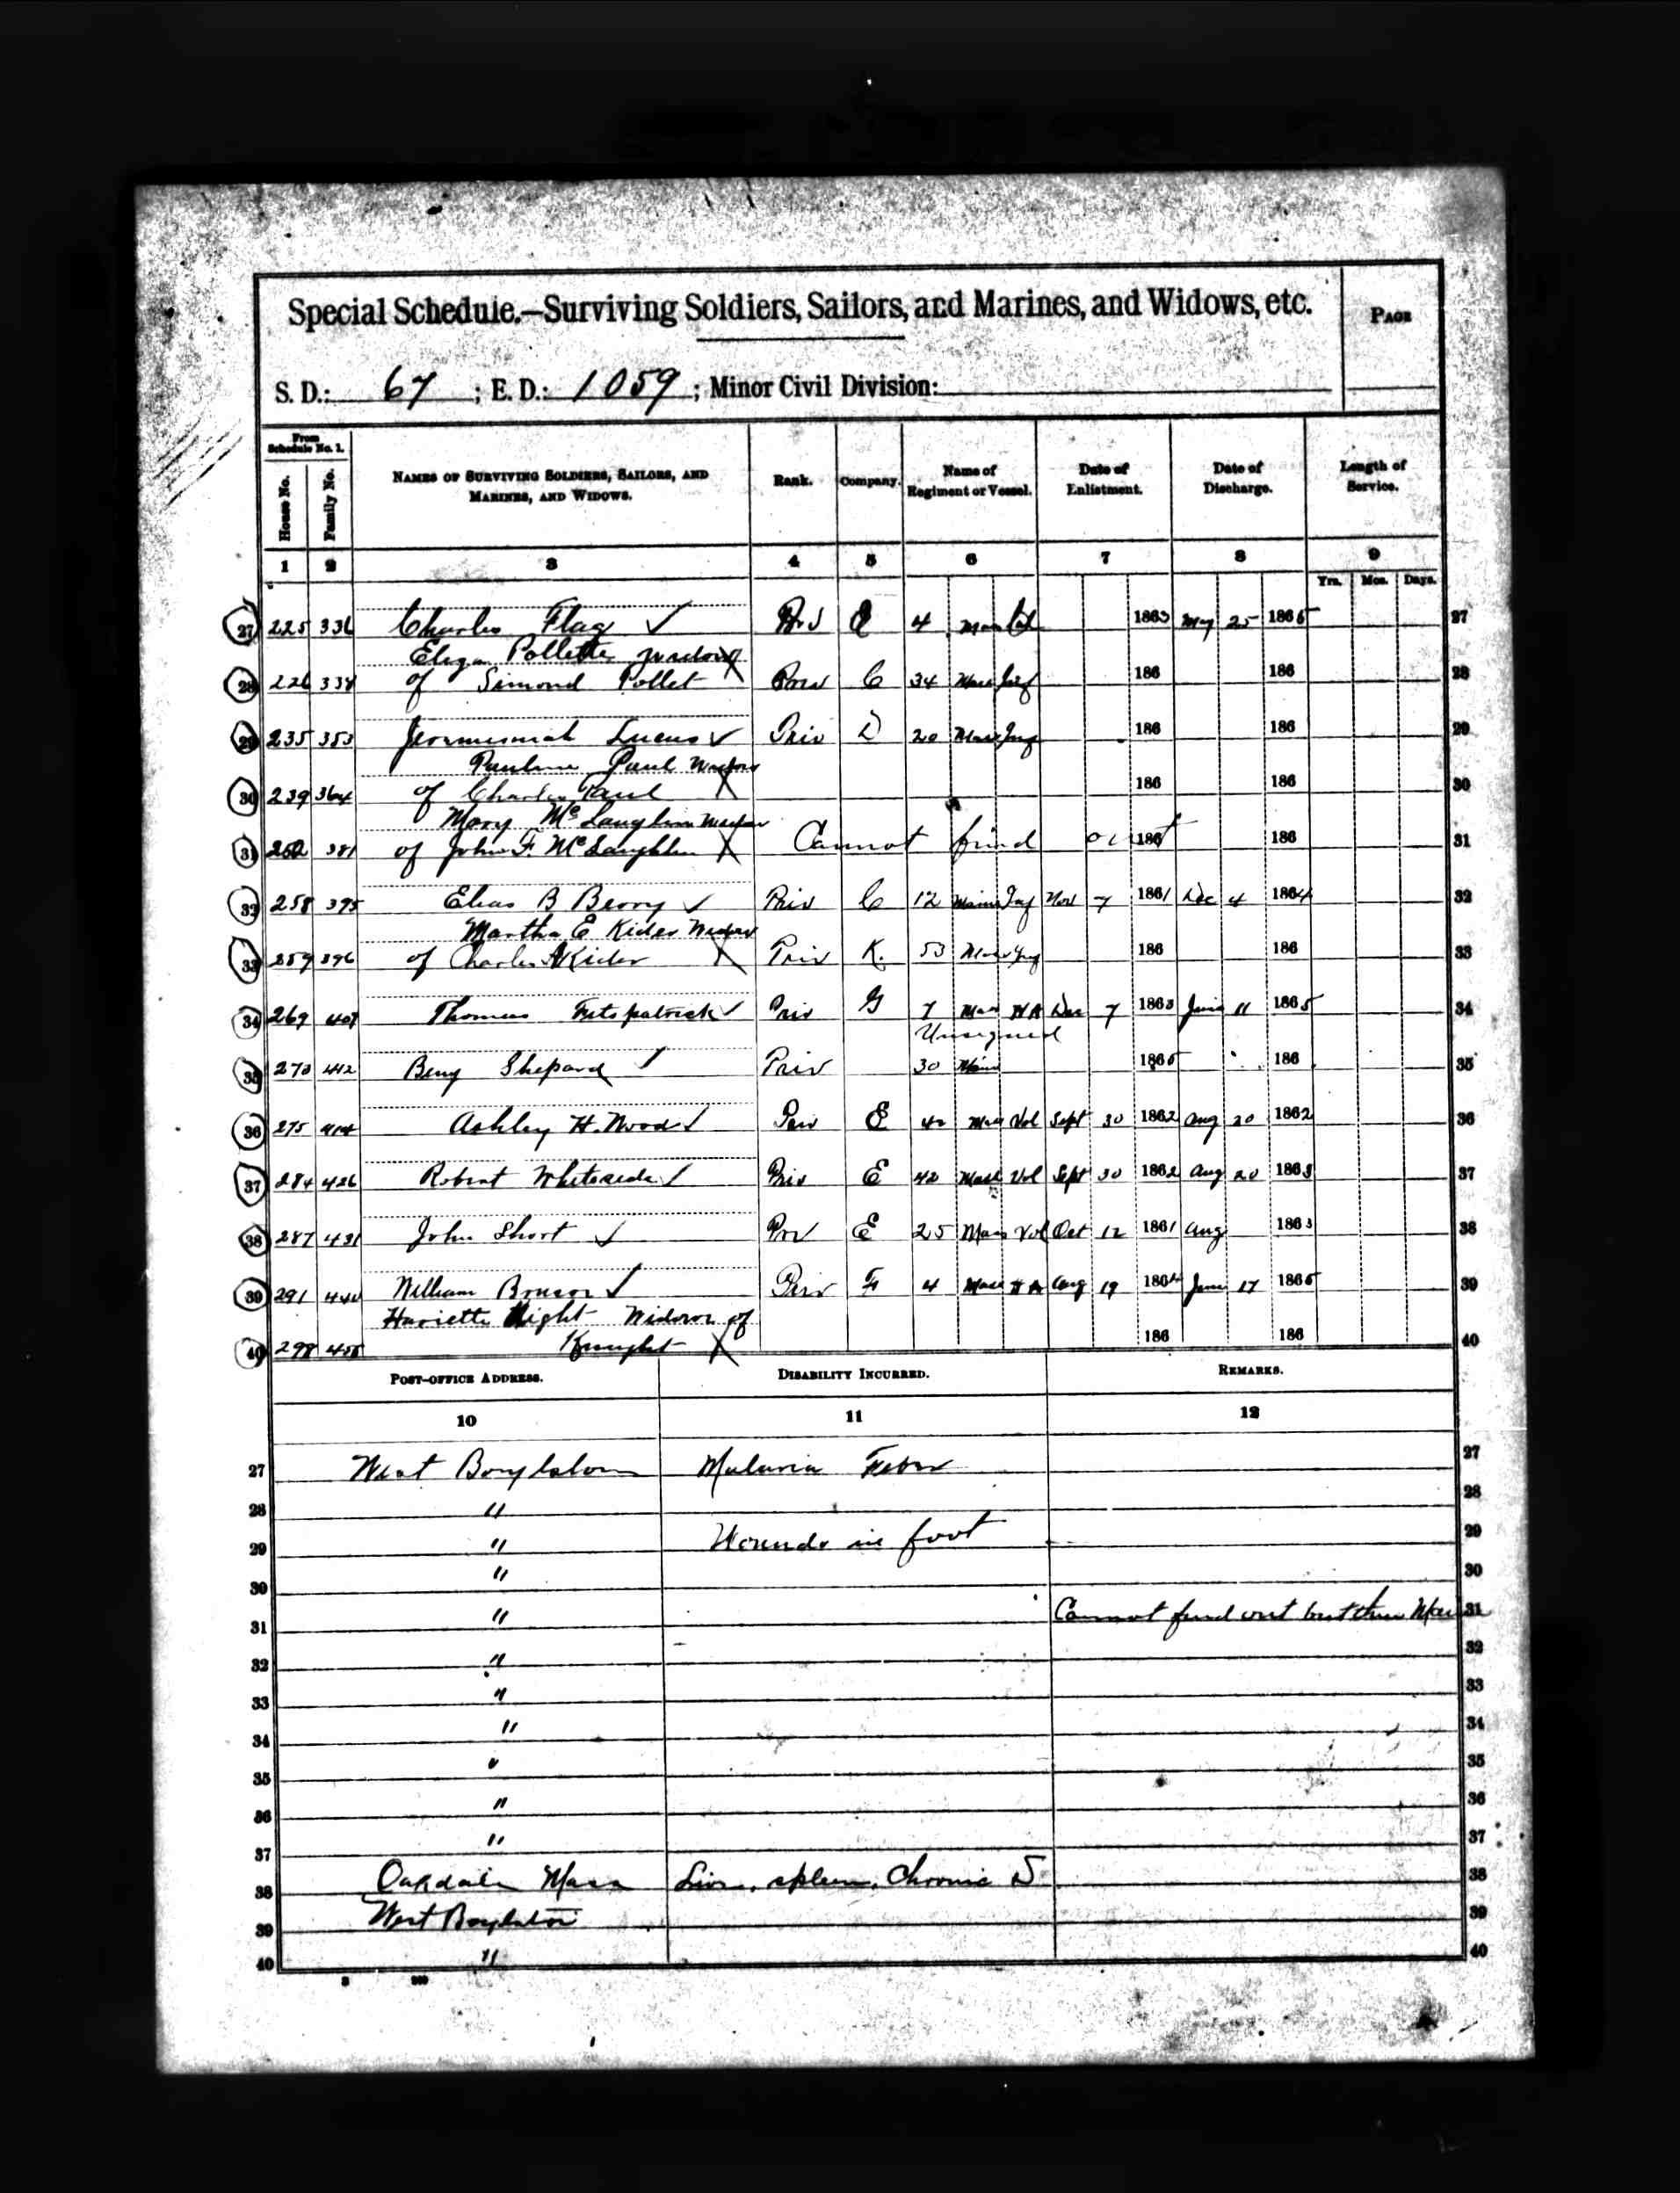 Special Schedule.—Surviving Soldiers, Sailors, and Marines, and Widows, etc.
PAGE
S. D.: 67 ; E. D.: 1059 ; Minor Civil Division:
From Schedule No. 1.
House No.
Family No.
NAMES OF SURVIVING SOLDIERS, SAILORS, AND MARINES, AND WIDOWS.
Rank.
Company.
Name of Regiment or Vessel.
Date of Enlistment.
Date of Discharge.
Length of Service.
1 2 3 4 5 6 7 8 9
Yrs. Mos. Days.
27 225 336 Charles Flag ✓ 4 Mass 1863 May 25 1865 27
Pollette widow
28 226 338 of Simond Pollet X Priv C 34 Mass Inf 186 186 28
29 235 353 Lucus ✓ Priv D 20 Mass Inf 186 186 29
Pauline Paul Widow
30 239 364 of Charles Paul X 186 186 30
Mary McLaughlin Widow
31 252 381 of John F. McLaughlin X Cannot find out 186 186 31
32 258 395 Elias B Berry ✓ Priv C 12 Maine Inf Nov 7 1861 Dec 4 1864 32
Martha E Kider Widow
33 259 396 of Charles Kider X Priv K. 53 Mass Inf 186 186 33
34 269 407 Thomas Fitspatrick ✓ Priv G 7 Mass H A Dec 7 1863 June 11 1865 34
Unsigned
35 273 412 Benj Shepard ✓ Priv 30 Main 1865 186 35
36 275 414 Ashley H. Wood ✓ Priv E 42 Mass Vol Sept 30 1862 Aug 20 1862 36
37 284 426 Robert Whiteside ✓ Priv E 42 Mass Vol Sept 30 1862 Aug 20 1863 37
38 287 431 John Short ✓ Prv E 25 Mass Vol Oct 12 1861 Aug 1863 38
39 291 440 William ✓ Priv F 4 Mass H A Aug 19 1864 June 17 1865 39
Harriette Night Widow of
40 298 455 Knight X 186 186 40
POST-OFFICE ADDRESS. DISABILITY INCURRED. REMARKS.
10 11 12
27 West Boylston Malaria Fever 27
28 " 28
29 " Wounds in foot 29
30 " 30
31 " Cannot find out 31
32 " 32
33 " 33
34 " 34
35 " 35
36 " 36
37 " 37
38 Oakdale Mass Liver, spleen, Chronic D 38
39 West Boylston 39
40 " 40